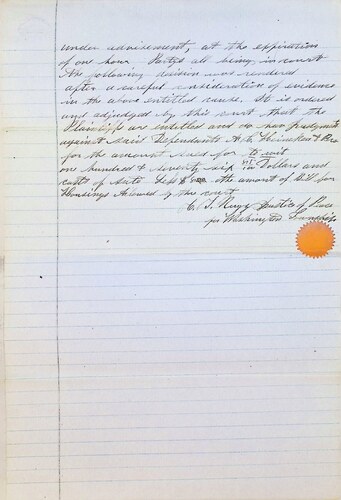 under advisement, at the expiration
of one hour Partys all being in court
the following decision was rendered
after a careful consideration of evidence
in the above entitled cause. It is ordered
and adjudged by this court that the
Plaintiffs are entitled and do have judgment
against said Defendants A. C. & Bro
for the amount sued for to wit
one hundred & seventy six Dollars and
costs of suit the amount of Bill for
allowed by the court
C. J. Justice of Peace
for Washington Township